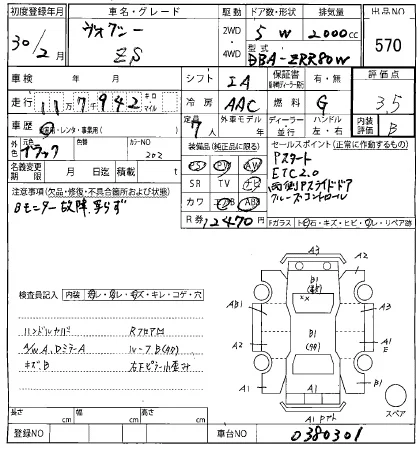 初度登録年月 車名・グレード 駆動 ドア数・形状 排気量 出品NO
30/2月 ヴォクシー ZS 2WD・4WD 5 W 2000cc 570
型式 DBA-ZRR80W
車検 年 月 シフト IA 保証書 有・無 評価点
走行 117942 キロ マイル 冷房 AAC 燃料 G 3.5
車歴 自家用・レンタ・事業用( ) 定員 7人 外車モデル 年 ディーラー 並行 ハンドル 左・右 内装評価 B
外色 元色 ブラック 色替 カラーNO 202
装備品(純正品に限る) セールスポイント(正常に作動するもの)
名義変更期限 月 日迄 積載量 t
PS PW AW
SR TV ナビ
カワ エアB ABS
R券 12470円
Pスタート
ETC2.0
両側Pスライドドア
クルーズコントロール
注意事項(欠品・修復・不具合箇所および状態)
Bモニター故障 写らず
Fガラス トビ石・キズ・ヒビ・ワレ・リペア跡
検査員記入 内装 スレ・ヨゴレ・キズ・キレ・コゲ・穴
ハンドルカバー RフロアD
A/W A、DミラーA ルーフB(タタ)
キズ、B 右下ピラー小歪み
A3
B1
A2
AB1
××
A3
B1
(タタ)
A2
A2
A1
E
A1
A1
B1
A1 Pアト
スペア
長さ cm 幅 cm 高さ cm
登録NO 車台NO 0380301